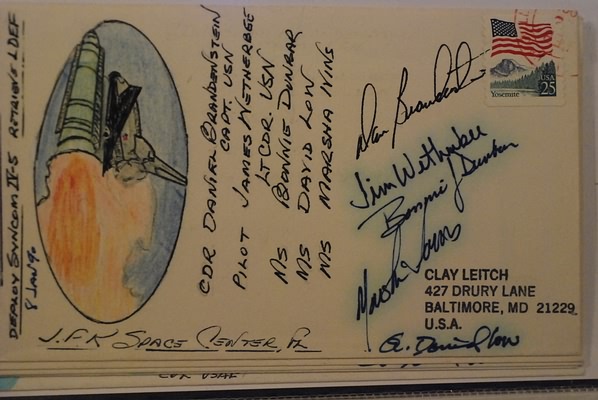 DEPLOY SYNCOM IV-5 RETRIEVE LDEF
8 JAN 90
J.F.K SPACE CENTER, FL
CDR DANIEL BRANDENSTEIN
CAPT. USN
PILOT JAMES WETHERBEE
LTCDR. USN
MS BONNIE DUNBAR
MS DAVID LOW
MS MARSHA IVINS
USA
25
Yosemite
Dan Brandenstein
Jim Wetherbee
Bonnie J Dunbar
Marsha Ivins
G. David Low
CLAY LEITCH
427 DRURY LANE
BALTIMORE, MD 21229
U.S.A.